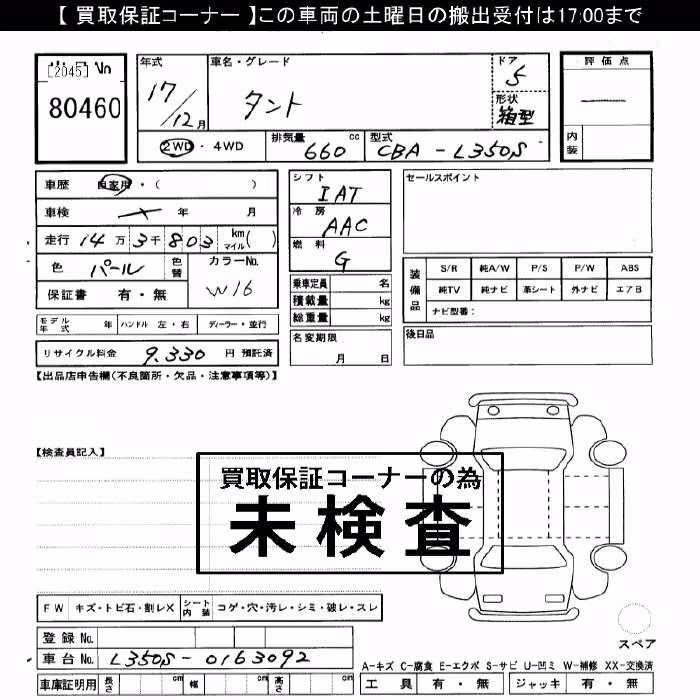 【 買取保証コーナー 】この車両の土曜日の搬出受付は17:00まで
[2045] No
80460
年式 17/12月
車名・グレード タント
ドア 5
形状 箱型
評価点 —
内装
2WD ・ 4WD
排気量 660 cc
型式 CBA - L350S
車歴 自家用 ・ ( )
車検 年 月
走行 14万3千803 km マイル ( )
色 パール 色替
カラーNo. W16
保証書 有 ・ 無
シフト IAT
冷房 AAC
燃料 G
乗車定員 名
積載量 kg
総重量 kg
名変期限 月 日
セールスポイント
装備品
S/R 純A/W P/S P/W ABS
純TV 純ナビ 革シート 外ナビ エアB
ナビ型番：
後日品
モデル年式 年 ハンドル 左 ・ 右 ディーラー ・ 並行
リサイクル料金 9,330 円 預託済
【出品店申告欄(不良箇所・欠品・注意事項等)】
【検査員記入】
買取保証コーナーの為
未検査
FW キズ・トビ石・割レX シート内装 コゲ・穴・汚レ・シミ・破レ・スレ
登録 No.
車台 No. L350S - 0163092
車庫証明用 長さ cm 幅 cm 高さ cm
スペア
A-キズ C-腐食 E-エクボ S-サビ U-凹ミ W-補修 XX-交換済
工具 有 ・ 無 ジャッキ 有 ・ 無